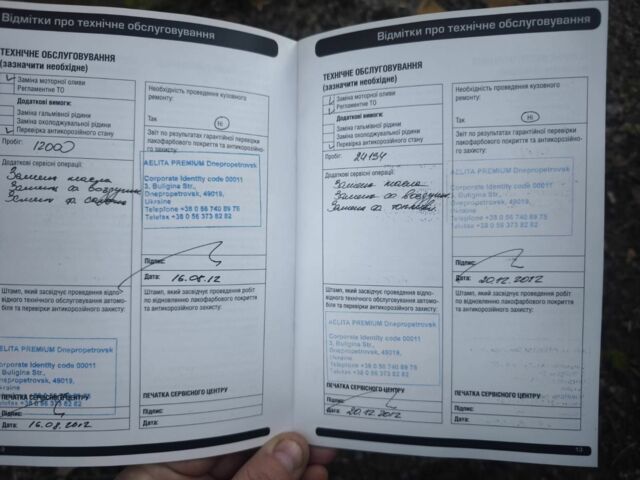 Відмітки про технічне обслуговування
ТЕХНІЧНЕ ОБСЛУГОВУВАННЯ
(зазначити необхідне)
Заміна моторної оливи
Регламентне ТО
Додаткові вимоги:
Заміна гальмівної рідини
Заміна охолоджувальної рідини
Перевірка антикорозійного стану
Пробіг: 12000
Додаткові сервісні операції:
Замена масла
Замена ф воздушн
Замена ф
Штамп, який засвідчує проведення відпо-
відного технічного обслуговування автомо-
біля та перевірки антикорозійного захисту:
AELITA PREMIUM Dnepropetrovsk
Corporate Identity code 00011
3, Buligina Str.,
Dnepropetrovsk, 49019,
Ukraine
Telephone +38 0 56 740 89 75
Telefax +38 0 56 373 82 82
ПЕЧАТКА СЕРВІСНОГО ЦЕНТРУ
Підпис:
Дата: 16.08.12
Необхідність проведення кузовного
ремонту:
Так Ні
Звіт по результатах гарантійної перевірки
лакофарбового покриття та антикорозійно-
го захисту:
AELITA PREMIUM Dnepropetrovsk
Corporate Identity code 00011
3, Buligina Str.,
Dnepropetrovsk, 49019,
Ukraine
Telephone +38 0 56 740 89 75
Telefax +38 0 56 373 82 82
Підпис:
Дата: 16.08.12
Штамп, який засвідчує проведення робіт
по відновленню лакофарбового покриття
та антикорозійного захисту:
ПЕЧАТКА СЕРВІСНОГО ЦЕНТРУ
Підпис:
Дата:
Відмітки про технічне обслуговування
ТЕХНІЧНЕ ОБСЛУГОВУВАННЯ
(зазначити необхідне)
Заміна моторної оливи
Регламентне ТО
Додаткові вимоги:
Заміна гальмівної рідини
Заміна охолоджувальної рідини
Перевірка антикорозійного стану
Пробіг: 24194
Додаткові сервісні операції:
Замена масла
Замена ф воздушн
Замена ф топливн
Штамп, який засвідчує проведення відпо-
відного технічного обслуговування автомо-
біля та перевірки антикорозійного захисту:
AELITA PREMIUM Dnepropetrovsk
Corporate Identity code 00011
3, Buligina Str.,
Dnepropetrovsk, 49019,
Ukraine
Telephone +38 0 56 740 89 75
Telefax +38 0 56 373 82 82
ПЕЧАТКА СЕРВІСНОГО ЦЕНТРУ
Підпис:
Дата: 20.12.2012
Необхідність проведення кузовного
ремонту:
Так Ні
Звіт по результатах гарантійної перевірки
лакофарбового покриття та антикорозійно-
го захисту:
AELITA PREMIUM Dnepropetrovsk
Corporate Identity code 00011
3, Buligina Str.,
Dnepropetrovsk, 49019,
Ukraine
Telephone +38 0 56 740 89 75
Telefax +38 0 56 373 82 82
Підпис:
Дата: 20.12.2012
Штамп, який засвідчує проведення робіт
по відновленню лакофарбового покриття
та антикорозійного захисту:
ПЕЧАТКА СЕРВІСНОГО ЦЕНТРУ
Підпис:
Дата:
13